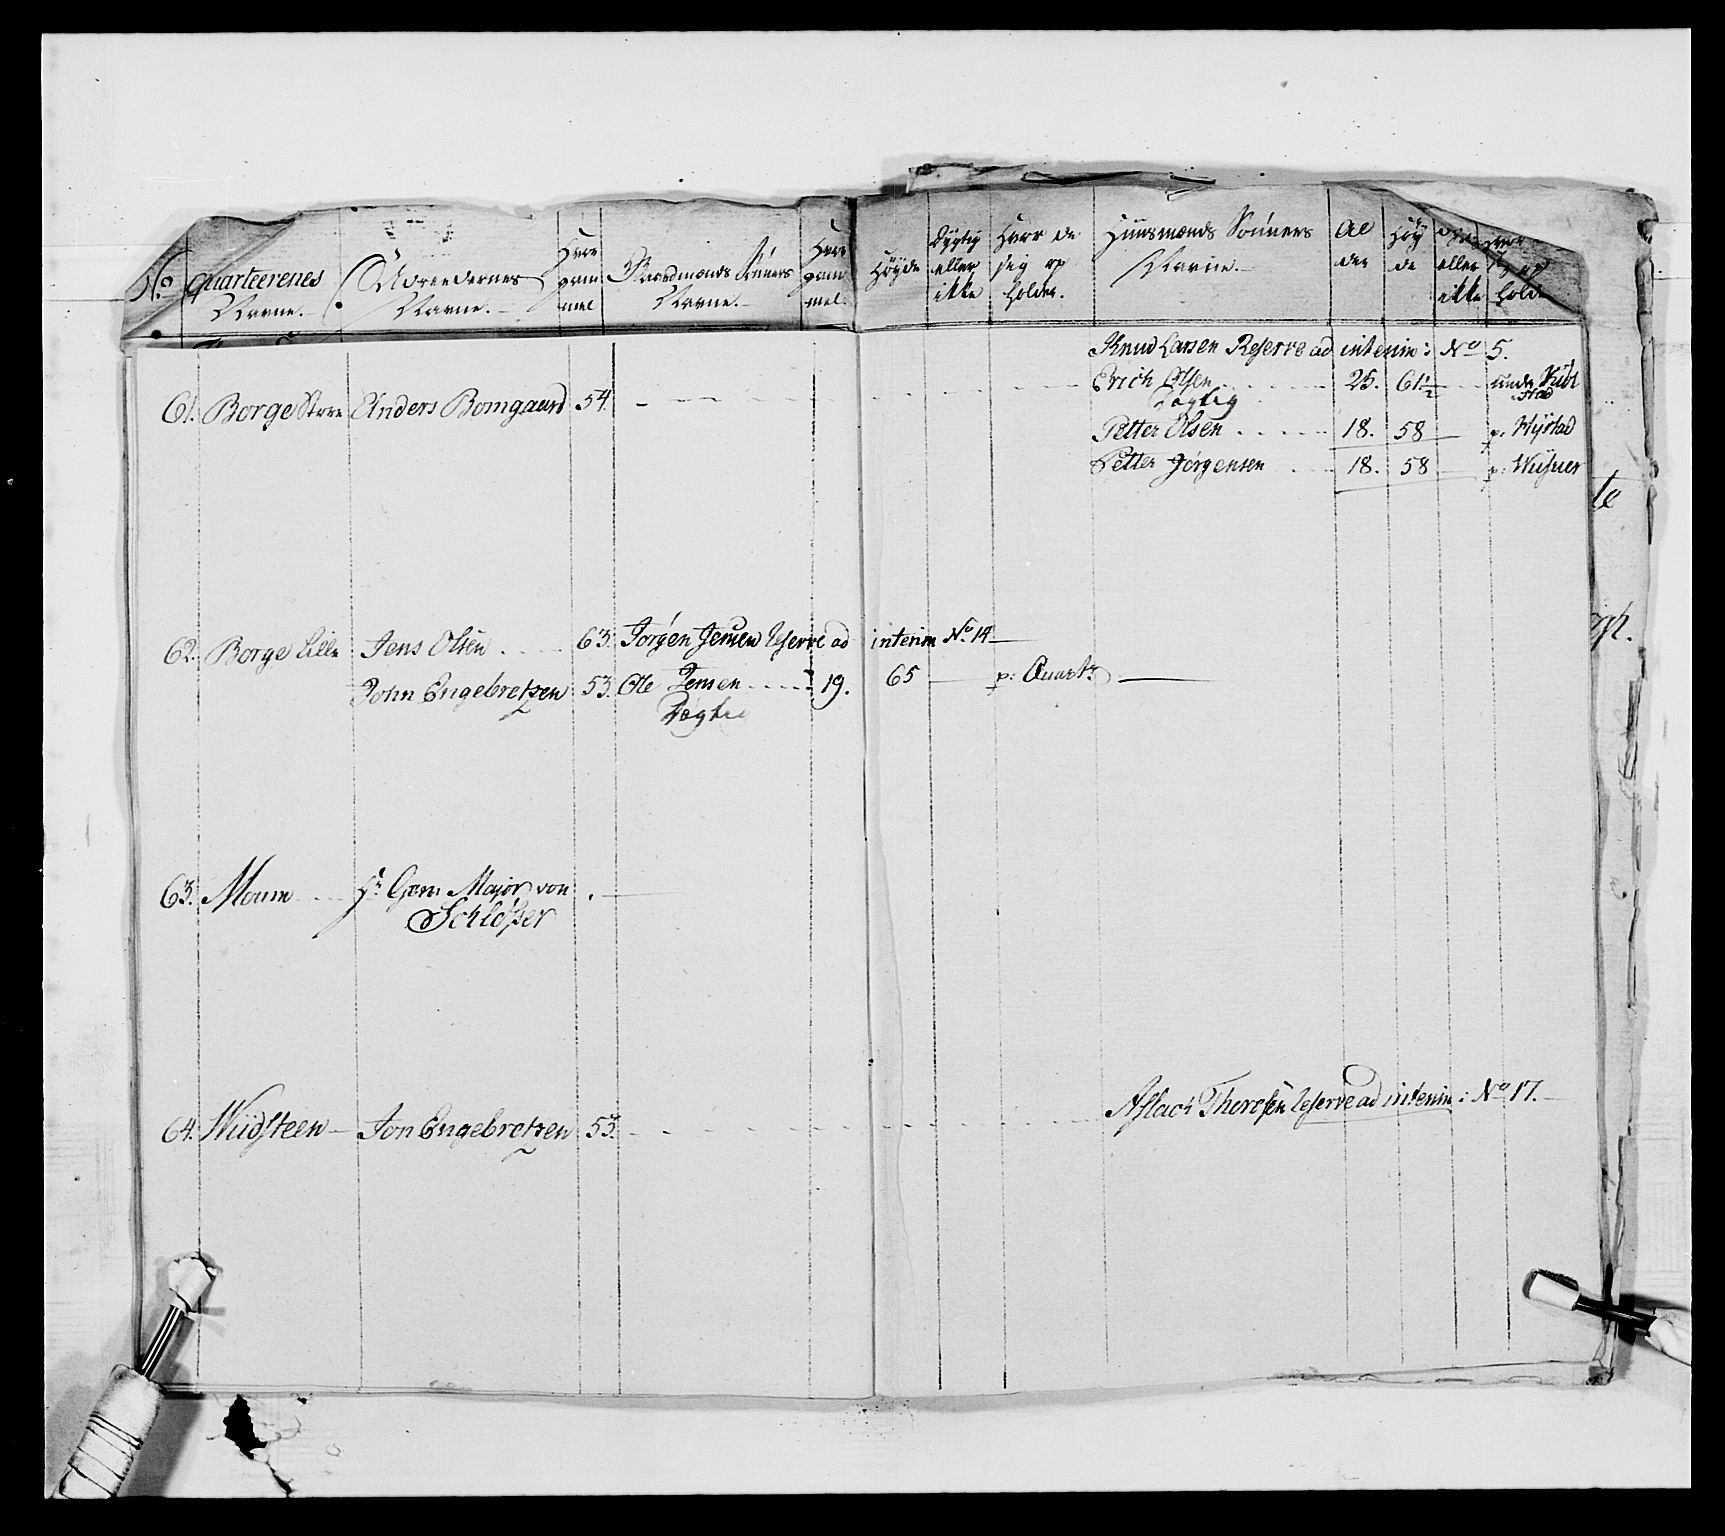 No quarteerenes Navne.
Navne.
Hvor gam mel
Gaardmænds Sönners Navne.
Hvor gam mel.
Höyde
Dygtig eller ikke
Hvor de sig op holder.
Huusmænds Sönners Navne.
Al der
Höy de
eller ikke
Knud Larsen Reserve ad interim: No 5.
61. Borge Store Anders Bomgaard 54.
Erich Olsen 25. 61½
Dögtig
Petter Olsen 18. 58 p: Nystad
Petter Jörgensen 18. 58
62. Borge Lille Jens Olsen 63. Jörgen Jensen Reserve ad interim No 14
John Engebretzen 53. Ole Jensen 19. 65 p: Quart:
Dögtig
63. Moum Hr Gen: Major von
Schlösser
64. Wiidsteen Jon Engebretzen 53.
Aslach Thoresen Reserve ad interim: No 17.